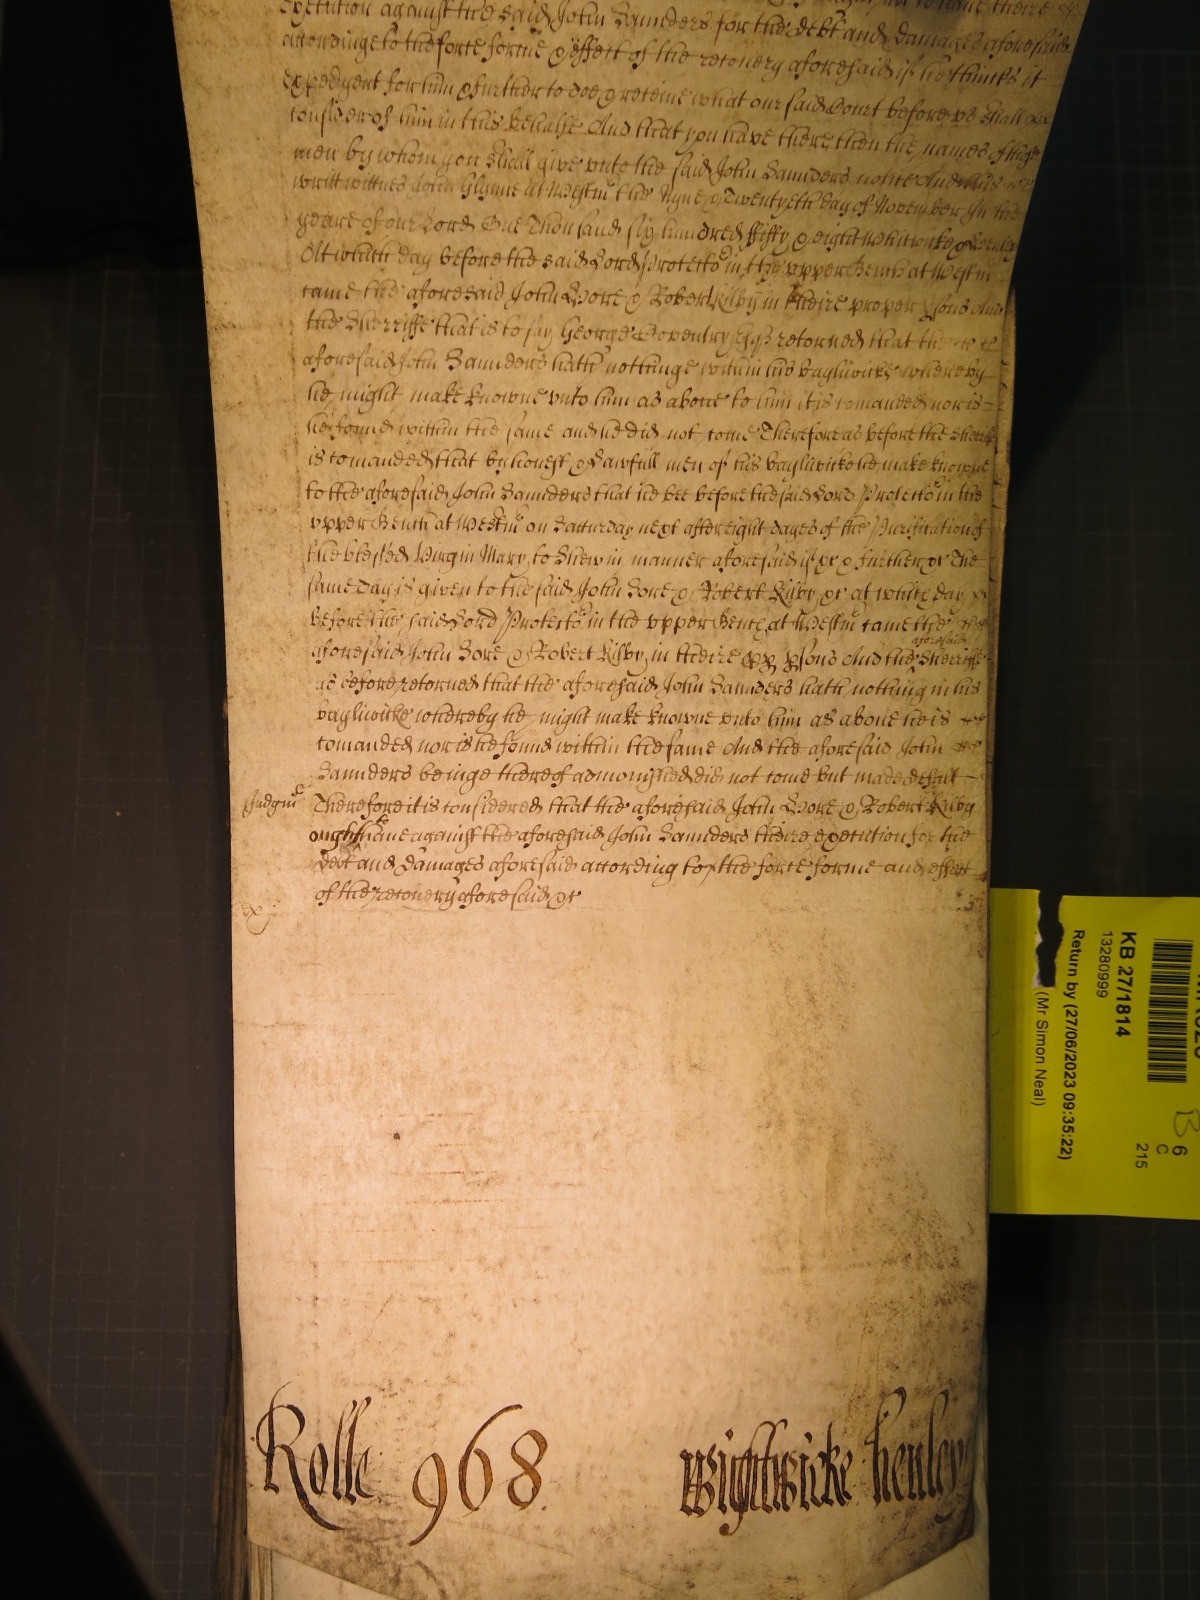 execution against the said John Saunders for the debt and damages aforesaid
accordinge to the force forme & effect of the recovery aforesaid if he thincks it
expedyent for him & further to doe & receive what our said Court before vs shall
consider of him in this behalfe And that you have there then the names of those
men by whom you shall give vnto the said John Saunders notice And this
writt wittnes John Glynne at Westmr the Nyne & Twentyeth day of November In the
yeare of our Lord One Thousand six hundred fiffty & eight Whitwicke & Henley
At which day before the said Lord Protector in the vpper Bench at Westmr
came the aforesaid John Bore & Robert Kilby in theire proper psons And
the Sherriffe that is to say George Coventry Esqr retorned that the
aforesaid John Saunders hath nothinge within his bayliwicke whereby
he might make knowne vnto him as aboue to him it is comanded nor is
he found within the same and he did not come Therefore as before the Sherriffe
is comanded that by honest & Lawfull men of his bayliwicke he make knowne
to the aforesaid John Saunders that he bee before the said Lord Protector in the
vpper Bench at Westmr on Satturday next after eight dayes of the Purification of
the blessed Virgin Mary to shew in manner aforesaid if &c & further &c The
same day is given to the said John Bore & Robert Kilby &c at which day
before the said Lord Protector in the vpper Bench at Westmr came the
aforesaid John Bore & Robert Kilby in theire pp psons And the aforesaid Sherriffe
as before retorned that the aforesaid John Saunders hath nothing in his
bayliwicke whereby he might make knowne vnto him as aboue he is
comanded nor is he found within the same And the aforesaid John
Saunders beinge thereof admonished did not come but made defalt
Judgmt Therefore it is considered that the aforesaid John Bore & Robert Kilby
ought to haue against the aforesaid John Saunders theire execution for the
debt and damages aforesaid according to the force forme and effect
of the recovery aforesaid &c
Rolle 968. Wightwicke henley
KB 27/1814
13280999
Return by (27/06/2023 09:35:22)
(Mr Simon Neal)
B 6
C
215